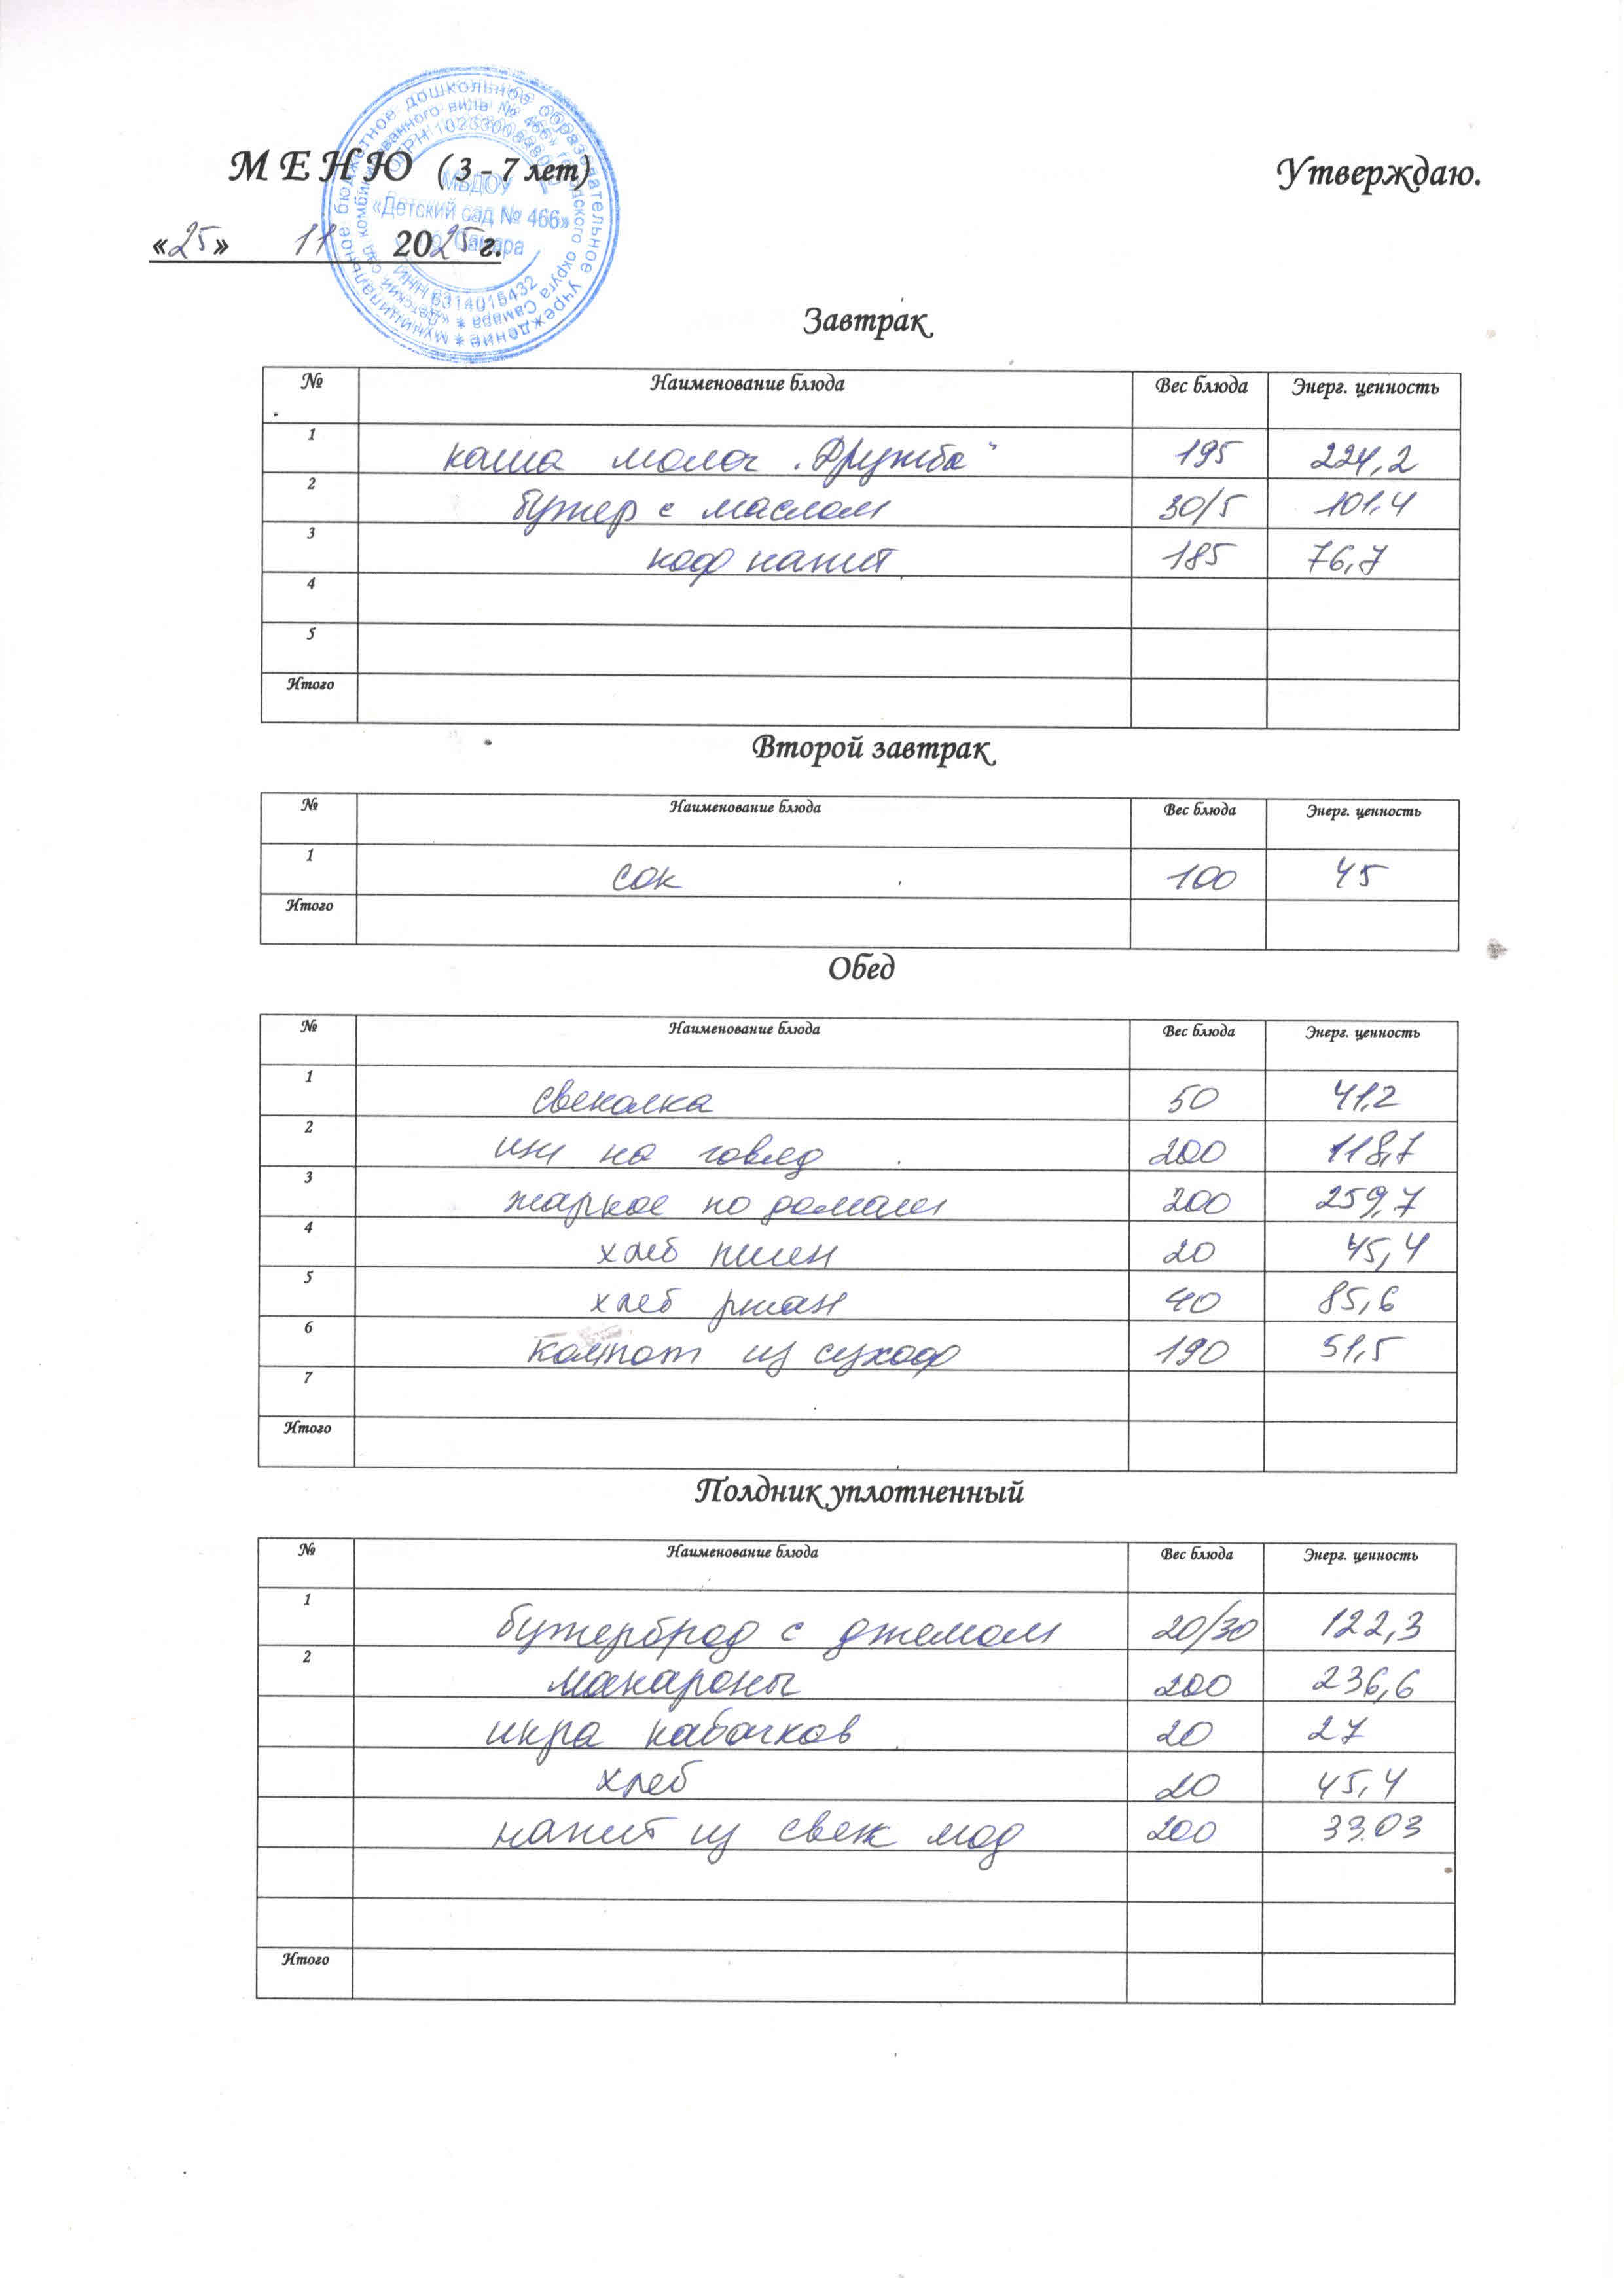 муниципальное бюджетное дошкольное образовательное учреждение
МБДОУ
«Детский сад № 466»
г.о. Самара
ИНН 6314015432
М Е Н Ю ( 3 - 7 лет)
Утверждаю.
«25» 11 2025 г.
Завтрак
№ Наименование блюда Вес блюда Энерг. ценность
1 каша молоч "Дружба" 195 224,2
2 бутер с маслом 30/5 101,4
3 коф напит 185 76,7
4
5
Итого
Второй завтрак
№ Наименование блюда Вес блюда Энерг. ценность
1 сок 100 45
Итого
Обед
№ Наименование блюда Вес блюда Энерг. ценность
1 свеколка 50 41,2
2 щи на говяд 200 118,7
3 жаркое по домашн 200 259,7
4 хлеб пшен 20 45,4
5 хлеб ржан 40 85,6
6 компот из сухоф 190 51,5
7
Итого
Полдник уплотненный
№ Наименование блюда Вес блюда Энерг. ценность
1 бутерброд с джемом 20/30 122,3
2 макароны 200 236,6
икра кабачков 20 27
хлеб 20 45,4
напит из свеж 200 33.03
Итого